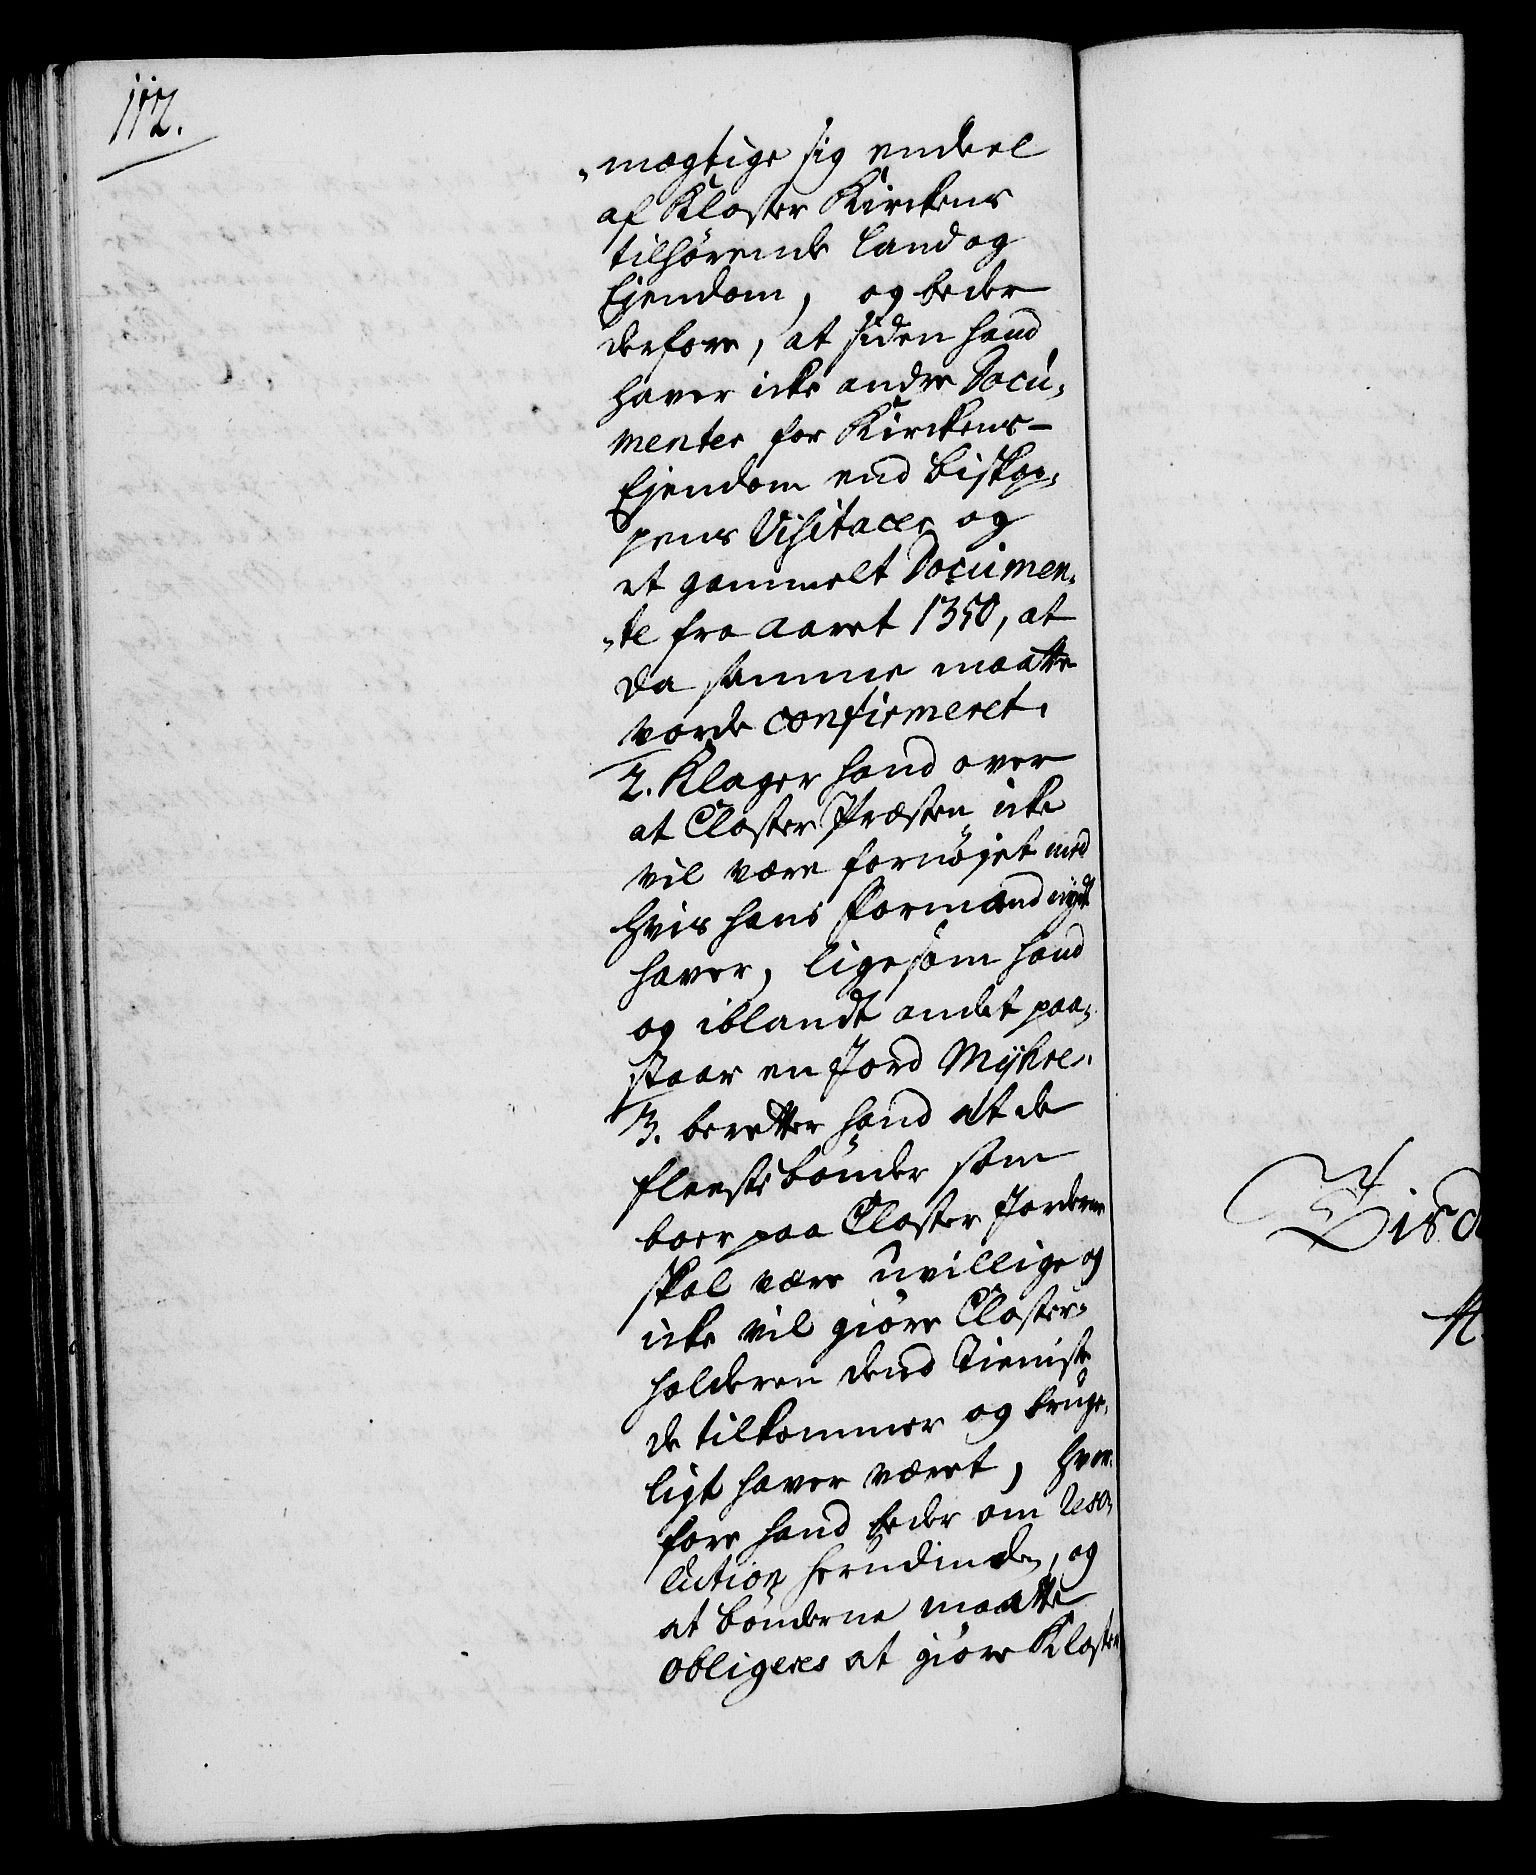 112.
mægtige sig endeel
af Kloster Kirckens
tilhørende Land og
Ejendom, og beder
derfore, at siden hand
haver icke andre Docu-
menter for Kirckens
Ejendom end Biskop-
pens Visitaces og
et gammelt Documen-
te fra Aaret 1350, at
da samme maatte
vorde confirmeret.
2. Klager hand over
at Closter Præsten icke
vil være fornøjet med
hvis hans Formænd nydt
haver, ligesom hand
og iblandt andet paa-
staar en Jord Myhre.
3. beretter hand at de
fleeste bønder som
boer paa Closter Jorderne
skal være uvillige og
icke vil giøre Closter-
holderen dend Tieniste
de tilkommer og bruge-
ligt haver været, hvor-
fore hand beder om Reso-
lution herudinden, og
at bønderne maatte
obligeres at giøre Kloster